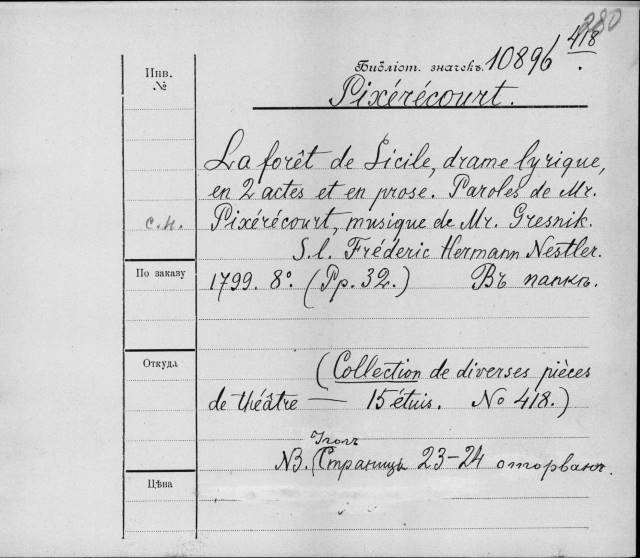 280
Библіот. значекъ. 10896 418.
Инв.
№
Pixérécourt.
La forêt de Sicile, drame lyrique,
en 2 actes et en prose. Paroles de Mr.
с.н. Pixérécourt, musique de Mr. Gresnik.
S.l. Fréderic Hermann Nestler.
По заказу
1799. 8°. (Pp. 32.) Въ папкѣ.
Откуда
(Collection de diverses pièces
de théâtre — 15 étuis. No 418.)
Уголъ
NB. (Страницъ 23-24 оторванъ.
Цѣна